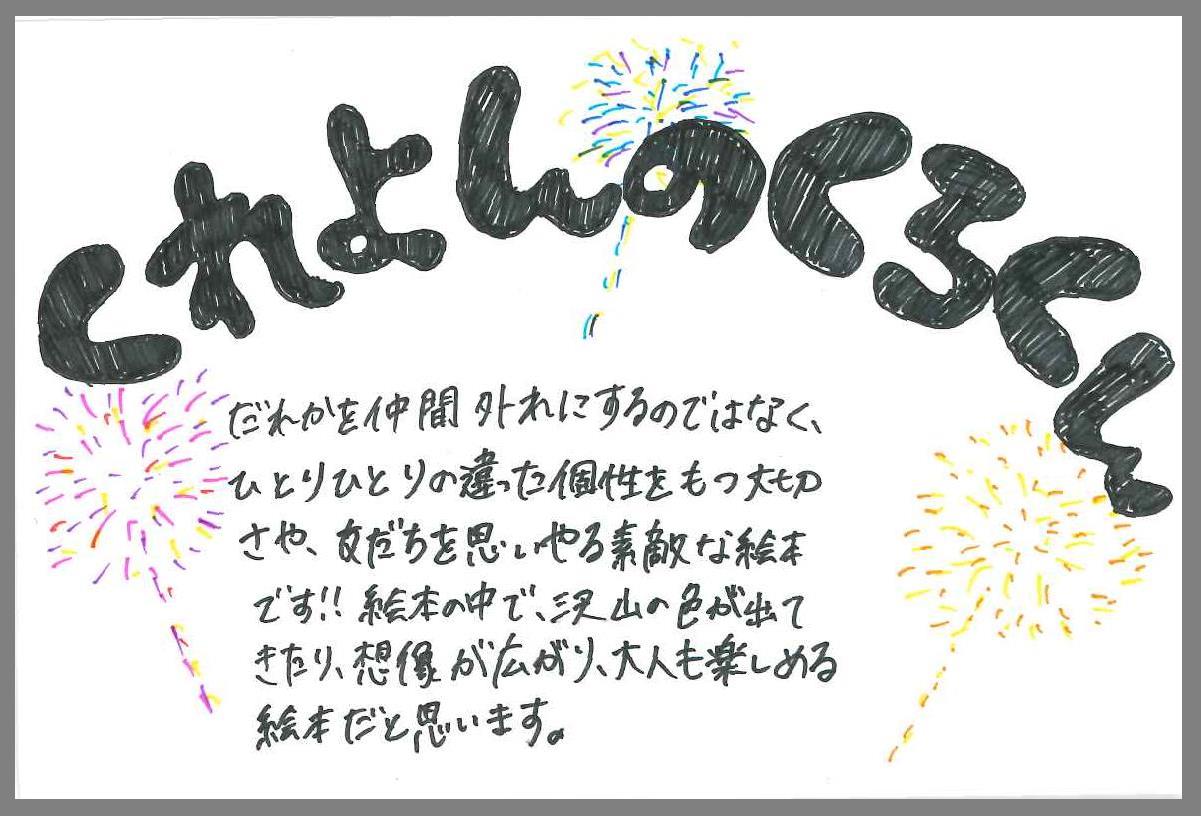 くれよんのくろくん
だれかを仲間外れにするのではなく、
ひとりひとりの違った個性をもつ大切
さや、友だちを思いやる素敵な絵本
です!! 絵本の中で、沢山の色が出て
きたり、想像が広がり、大人も楽しめる
絵本だと思います。